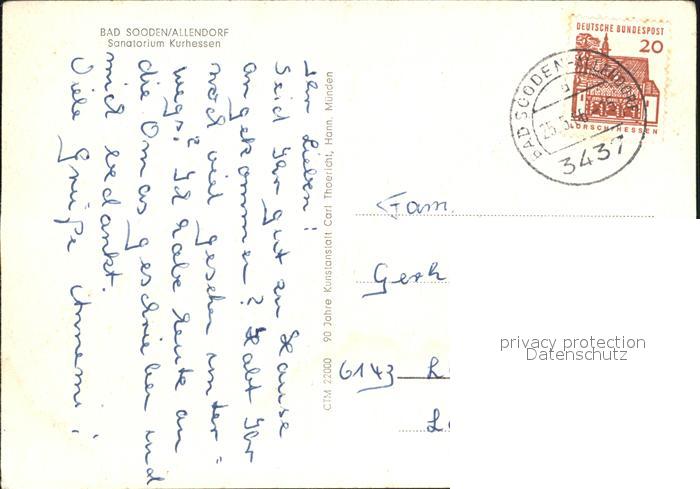 BAD SOODEN/ALLENDORF
Sanatorium Kurhessen
Ihr Lieben!
Seid Ihr gut zu Hause
angekommen? Habt Ihr
noch viel gesehen unter=
wegs? Ich habe heute an
die Omas geschrieben und
mich bedankt.
Viele Grüße Annemi!
CTM 22000 90 Jahre Kunstanstalt Carl Thoericht, Hann. Münden
DEUTSCHE BUNDESPOST
20
LORSCH/HESSEN
BAD SOODEN-ALLENDORF
3437
Fam.
Gerh
6143
privacy protection
Datenschutz